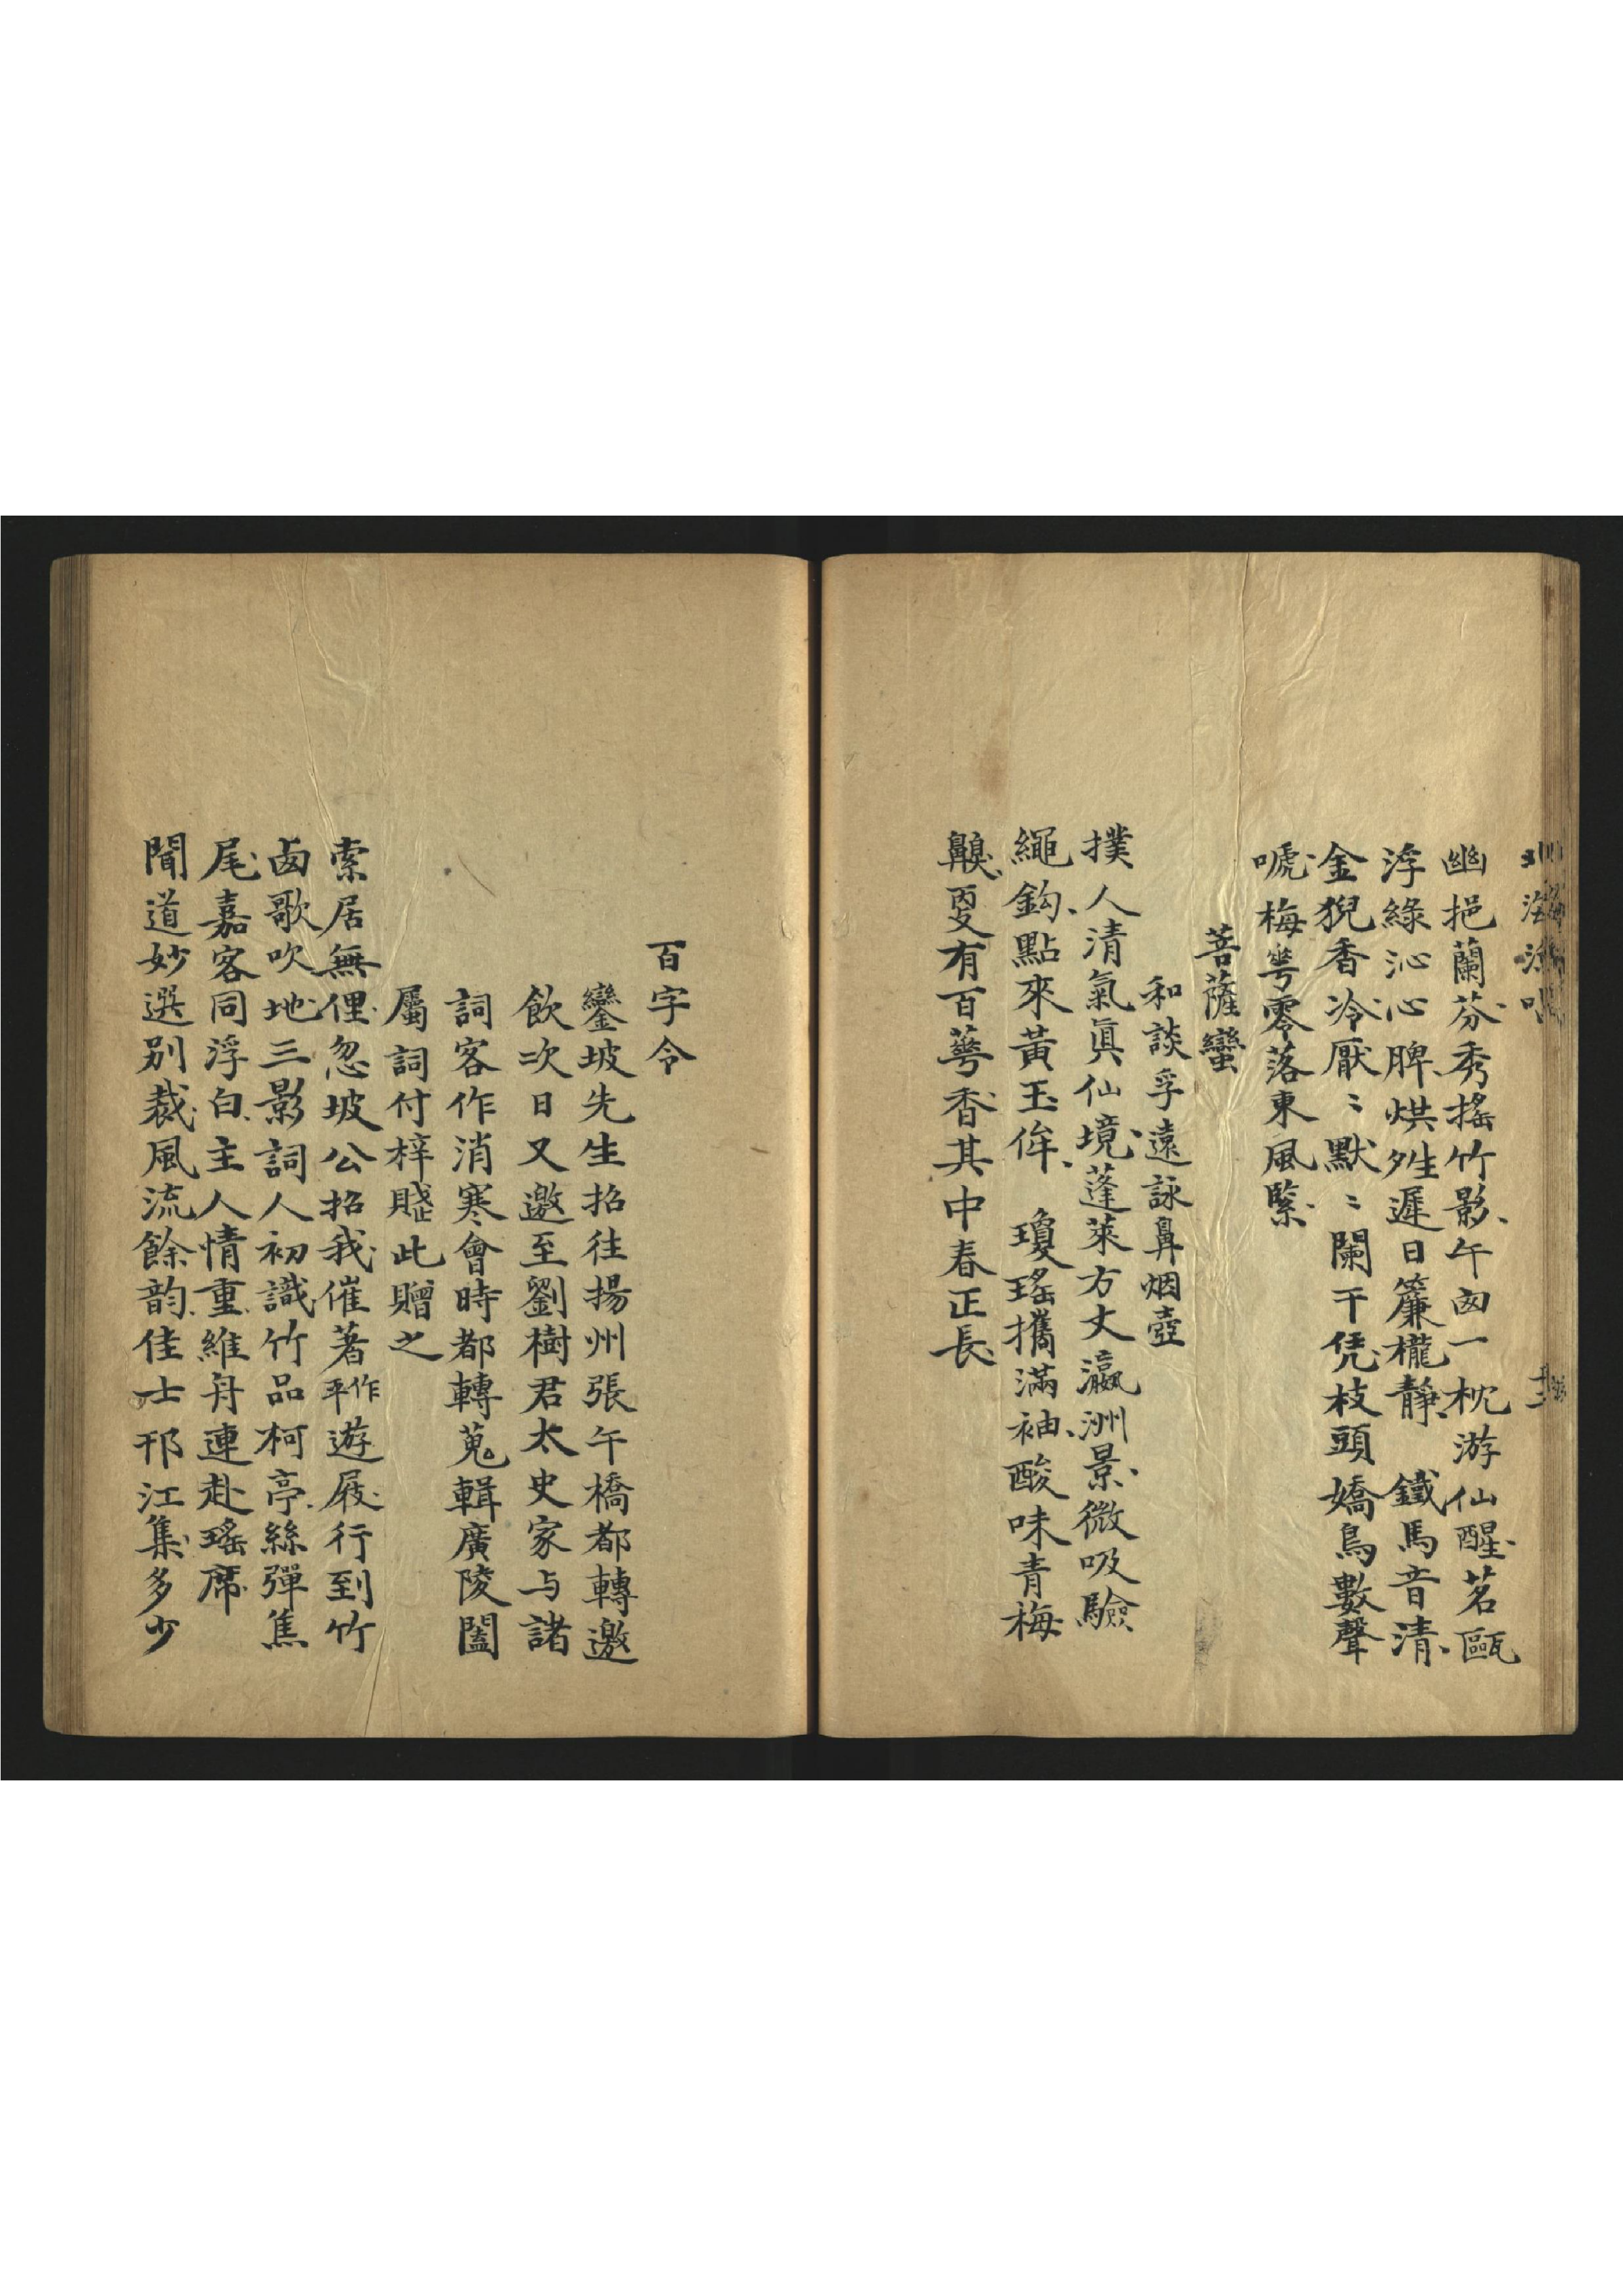 幽挹蘭芬秀搖竹影午囱一枕游仙醒茗甌
浮綠沁心脾烘甡遲日簾櫳靜　鐵馬音清
金猊香冷厭〻默〻闌干凭枝頭嬌鳥數聲
嗁梅萼零落東風緊
菩薩蠻
和談孚遠詠鼻烟壺
撲人清氣眞仙境蓬萊方丈瀛洲景微吸驗
繩鈎點來黃玉侔　瓊瑤攜滿袖酸味青梅
齅㪅有百蕚香其中春正長
百字令
鑾坡先生招往揚州張午橋都轉邀
飲次日又邀至劉樹君太史家与諸
詞客作消寒會時都轉蒐輯廣陵闔
屬詞付梓賤此贈之
索居無俚忽坡公招我催著作平遊屐行到竹
卤歌吹地三影詞人初識竹品柯亭絲彈焦
尾嘉客同浮白主人情重維舟連赴瑤席
聞道妙選別裁風流餘韵佳士邗江集多少